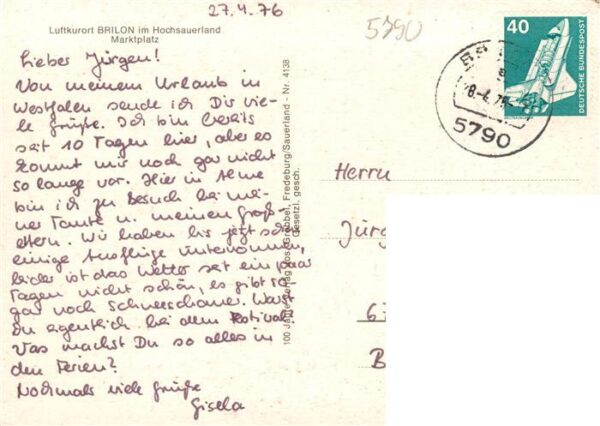 27.4.76
Luftkurort BRILON im Hochsauerland
Marktplatz
Lieber Jürgen!
Von meinem Urlaub in
Westfalen sende ich Dir vie-
le Grüße. Ich bin bereits
seit 10 Tagen hier, aber es
kommt mir noch gar nicht
so lange vor. Hier in Alme
bin ich zu Besuch bei mei-
ner Tante u. meinen Groß-
eltern. Wir haben bis jetzt schon
einige Ausflüge unternommen,
leider ist das Wetter seit ein paar
Tagen nicht schön, es gibt so-
gar noch Schneeschauer. Warst
Du eigentlich bei dem Festival?
Was machst Du so alles in
den Ferien?
Nochmals viele Grüße
Gisela
100 Jahre Verlag Jos. Grobbel, Fredeburg/Sauerland - Nr. 4138
Gesetzl. gesch.
5790
40
DEUTSCHE BUNDESPOST
5790
Herrn
Jürg
6
B